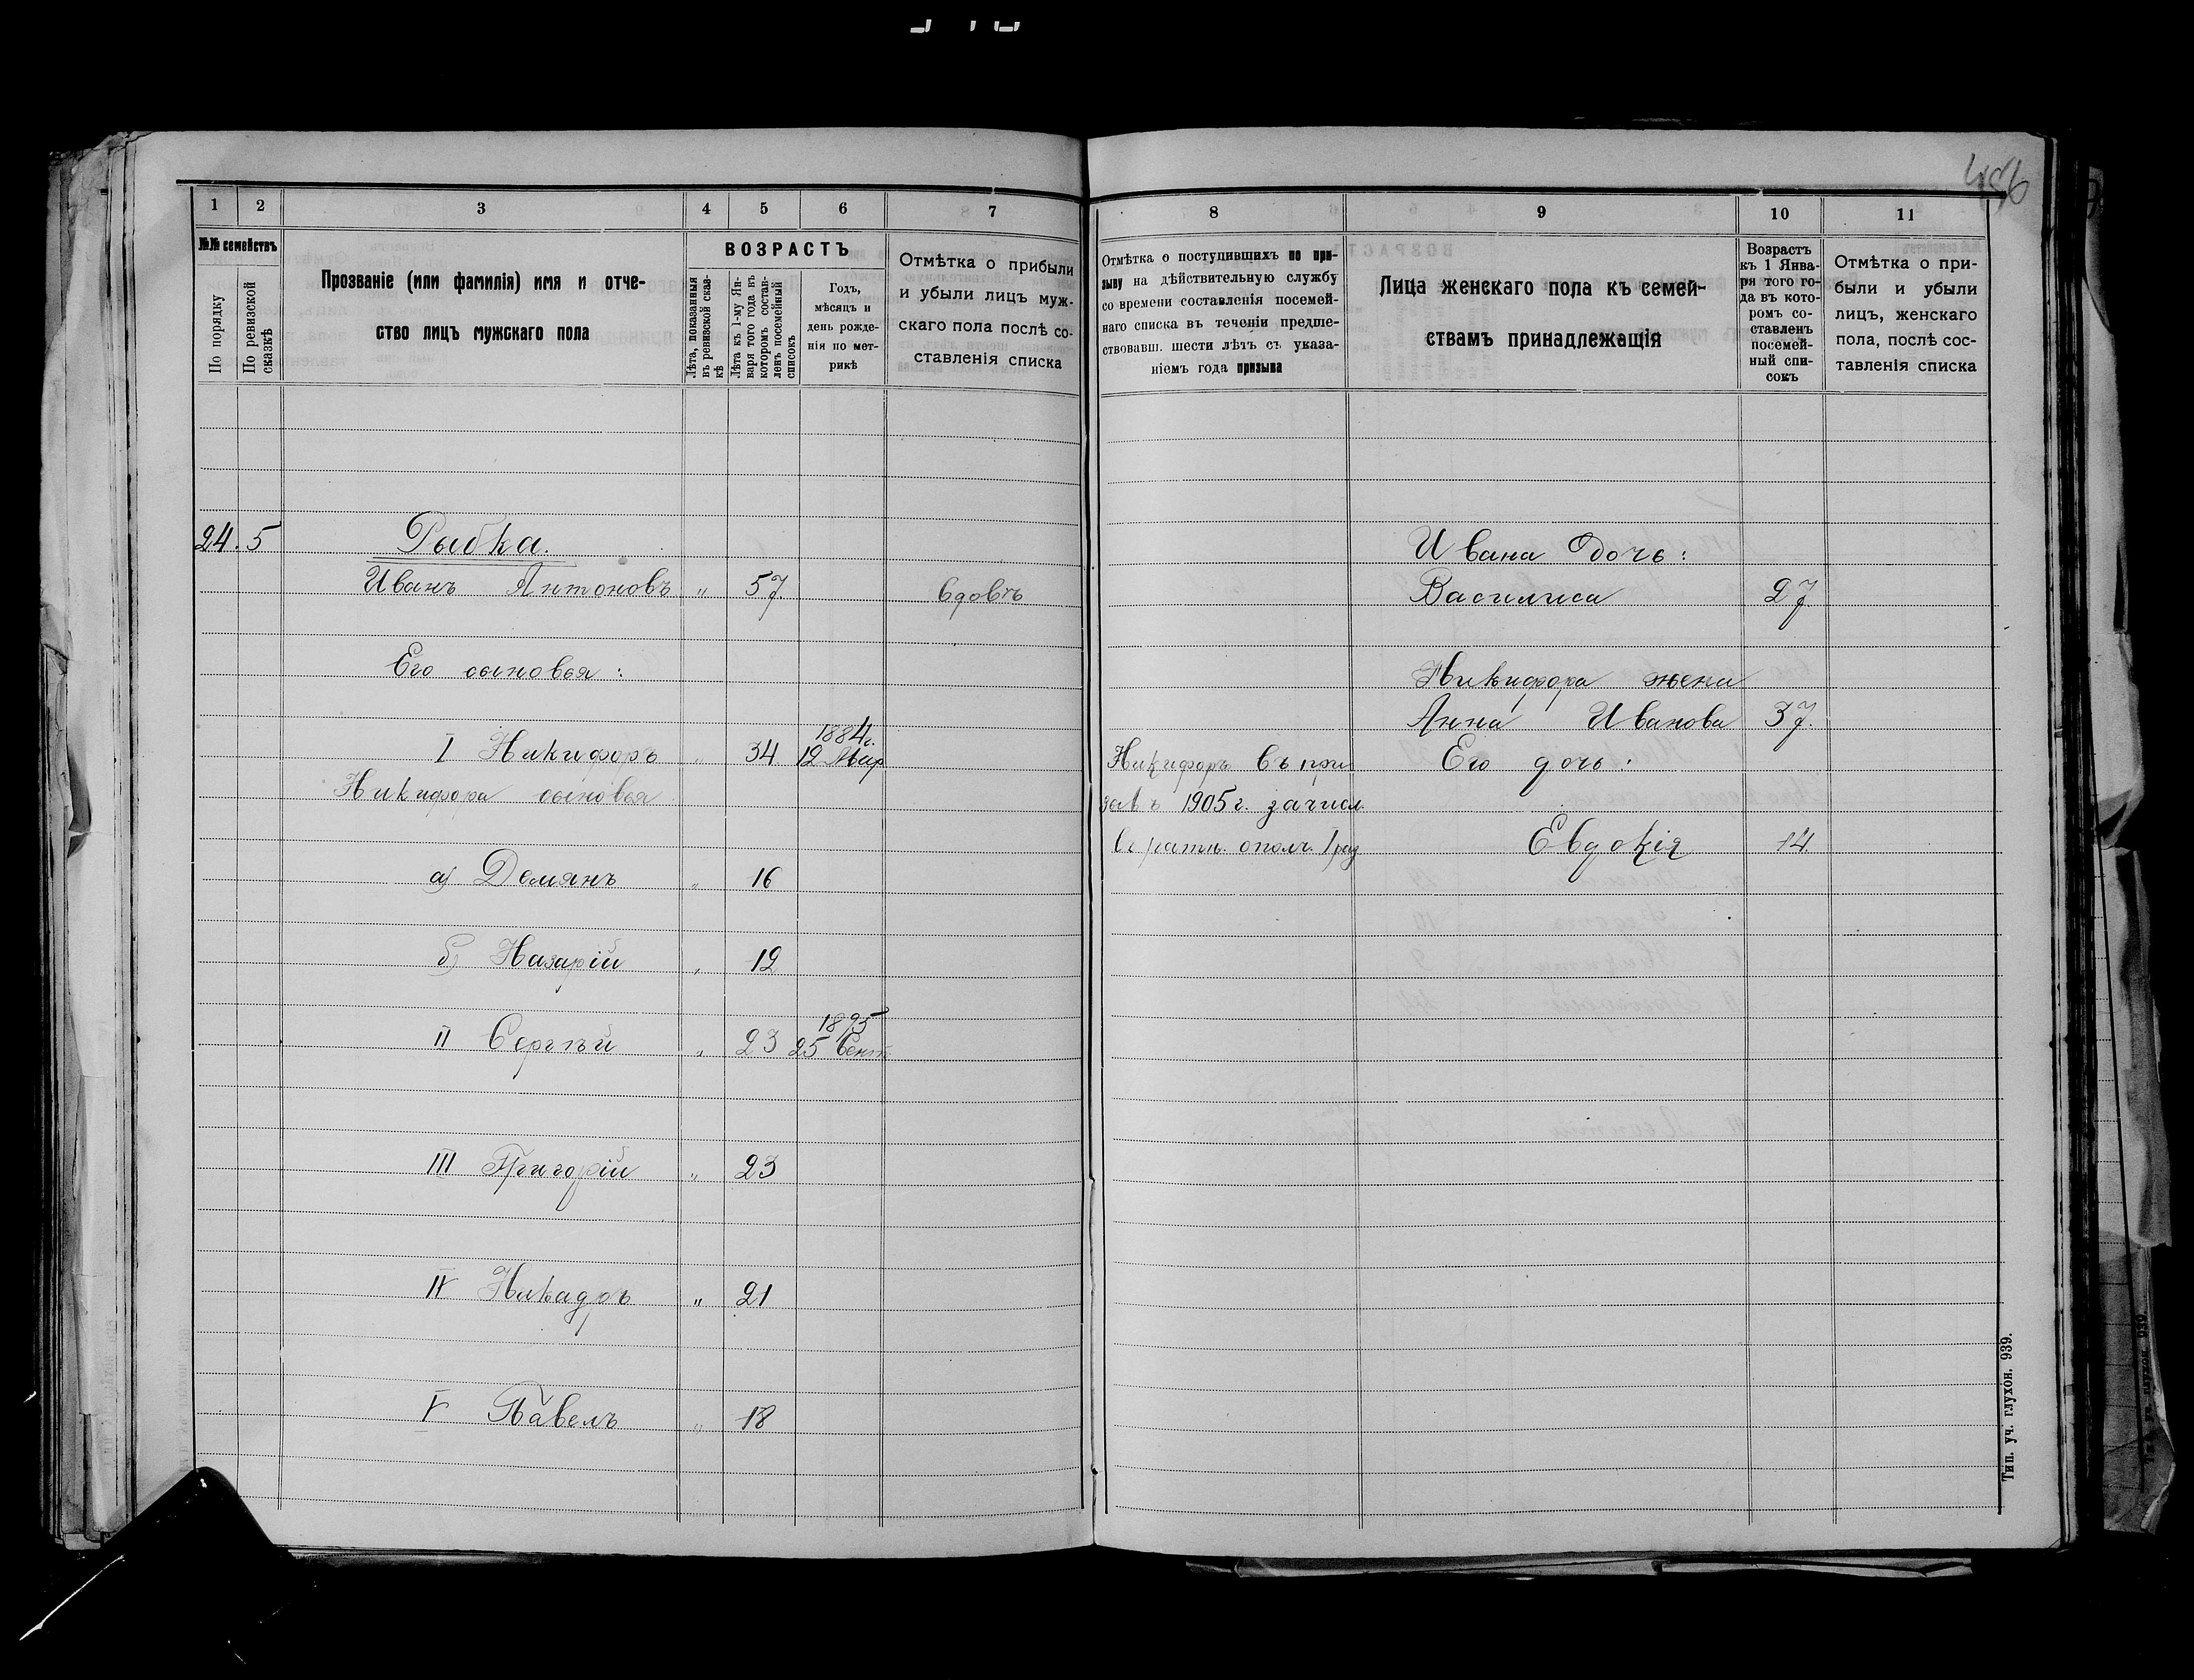 1 2 3 4 5 6 7
№№ семействъ
По порядку
По ревизской сказкѣ
Прозваніе (или фамилія) имя и отче-
ство лицъ мужскаго пола
ВОЗРАСТЪ
Лѣта, показанныя
въ ревизской сказ-
кѣ
Лѣта къ 1-му Ян-
варя того года въ
которомъ состав-
ленъ посемейный
списокъ
Годъ,
мѣсяцъ и
день рожде-
нія по мет-
рикѣ
Отмѣтка о прибыли
и убыли лицъ муж-
скаго пола послѣ со-
ставленія списка
24. 5 Рыбка.
Иванъ Антоновъ " 57. вдовъ
Его сыновья:
1884г.
I Никифоръ " 34 12 Мар
Никифора сыновья
а) Демянъ " 16
б) Назарій " 12
1895
II Сергѣй " 23 25 Сент
III Григорій " 23
IV Никадръ " 21
V Павелъ " 18
8 9 10 11
Отмѣтка о поступившихъ по при-
зыву на дѣйствительную службу
со времени составленія посемей-
наго списка въ теченіи предше-
ствовавш. шести лѣтъ съ указа-
ніемъ года призыва
Лица женскаго пола къ семей-
ствамъ принадлежащія
Возрастъ
къ 1 Янва-
ря того го-
да въ кото-
ромъ со-
ставленъ
посемей-
ный спи-
сокъ
Отмѣтка о при-
были и убыли
лицъ, женскаго
пола, послѣ сос-
тавленія списка
Ивана дочь:
Василиса 27
Никифора жена
Анна Иванова 37.
Никифоръ въ при Его дочь:
зывъ 1905г. зачисл.
въ ратн. ополч. 1 раз Евдокія 14.
Тип. уч. глухон. 939.